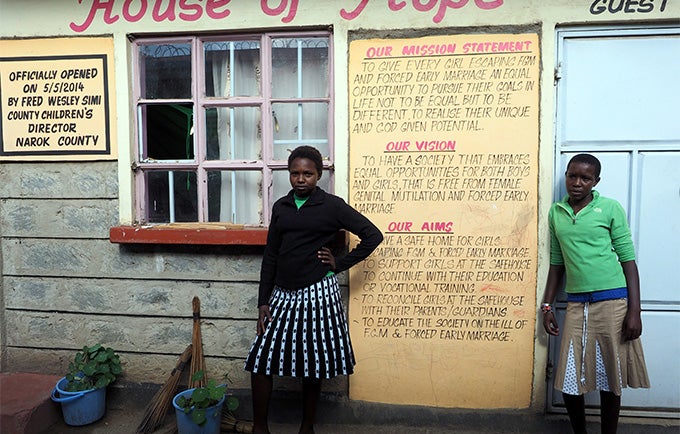 House of Hope
GUEST
OFFICIALLY OPENED
ON 5/5/2014
BY FRED WESLEY SIMI
COUNTY CHILDREN'S
DIRECTOR
NAROK COUNTY
OUR MISSION STATEMENT
TO GIVE EVERY GIRL ESCAPING FGM
AND FORCED EARLY MARRIAGE AN EQUAL
OPPORTUNITY TO PURSUE THEIR GOALS IN
LIFE NOT TO BE EQUAL BUT TO BE
DIFFERENT, TO REALISE THEIR UNIQUE
AND GOD GIVEN POTENTIAL.
OUR VISION
TO HAVE A SOCIETY THAT EMBRACES
EQUAL OPPORTUNITIES FOR BOTH BOYS
AND GIRLS, THAT IS FREE FROM FEMALE
GENITAL MUTILATION AND FORCED EARLY
MARRIAGE
OUR AIMS
HAVE A SAFE HOME FOR GIRLS
ESCAPING FGM & FORCED EARLY MARRIAGE
TO SUPPORT GIRLS AT THE SAFEHOUSE
TO CONTINUE WITH THEIR EDUCATION
OR VOCATIONAL TRAINING
~ TO RECONCILE GIRLS AT THE SAFEHOUSE
WITH THEIR PARENTS/GUARDIANS
~ TO EDUCATE THE SOCIETY ON THE ILL OF
F.G.M & FORCED EARLY MARRIAGE.